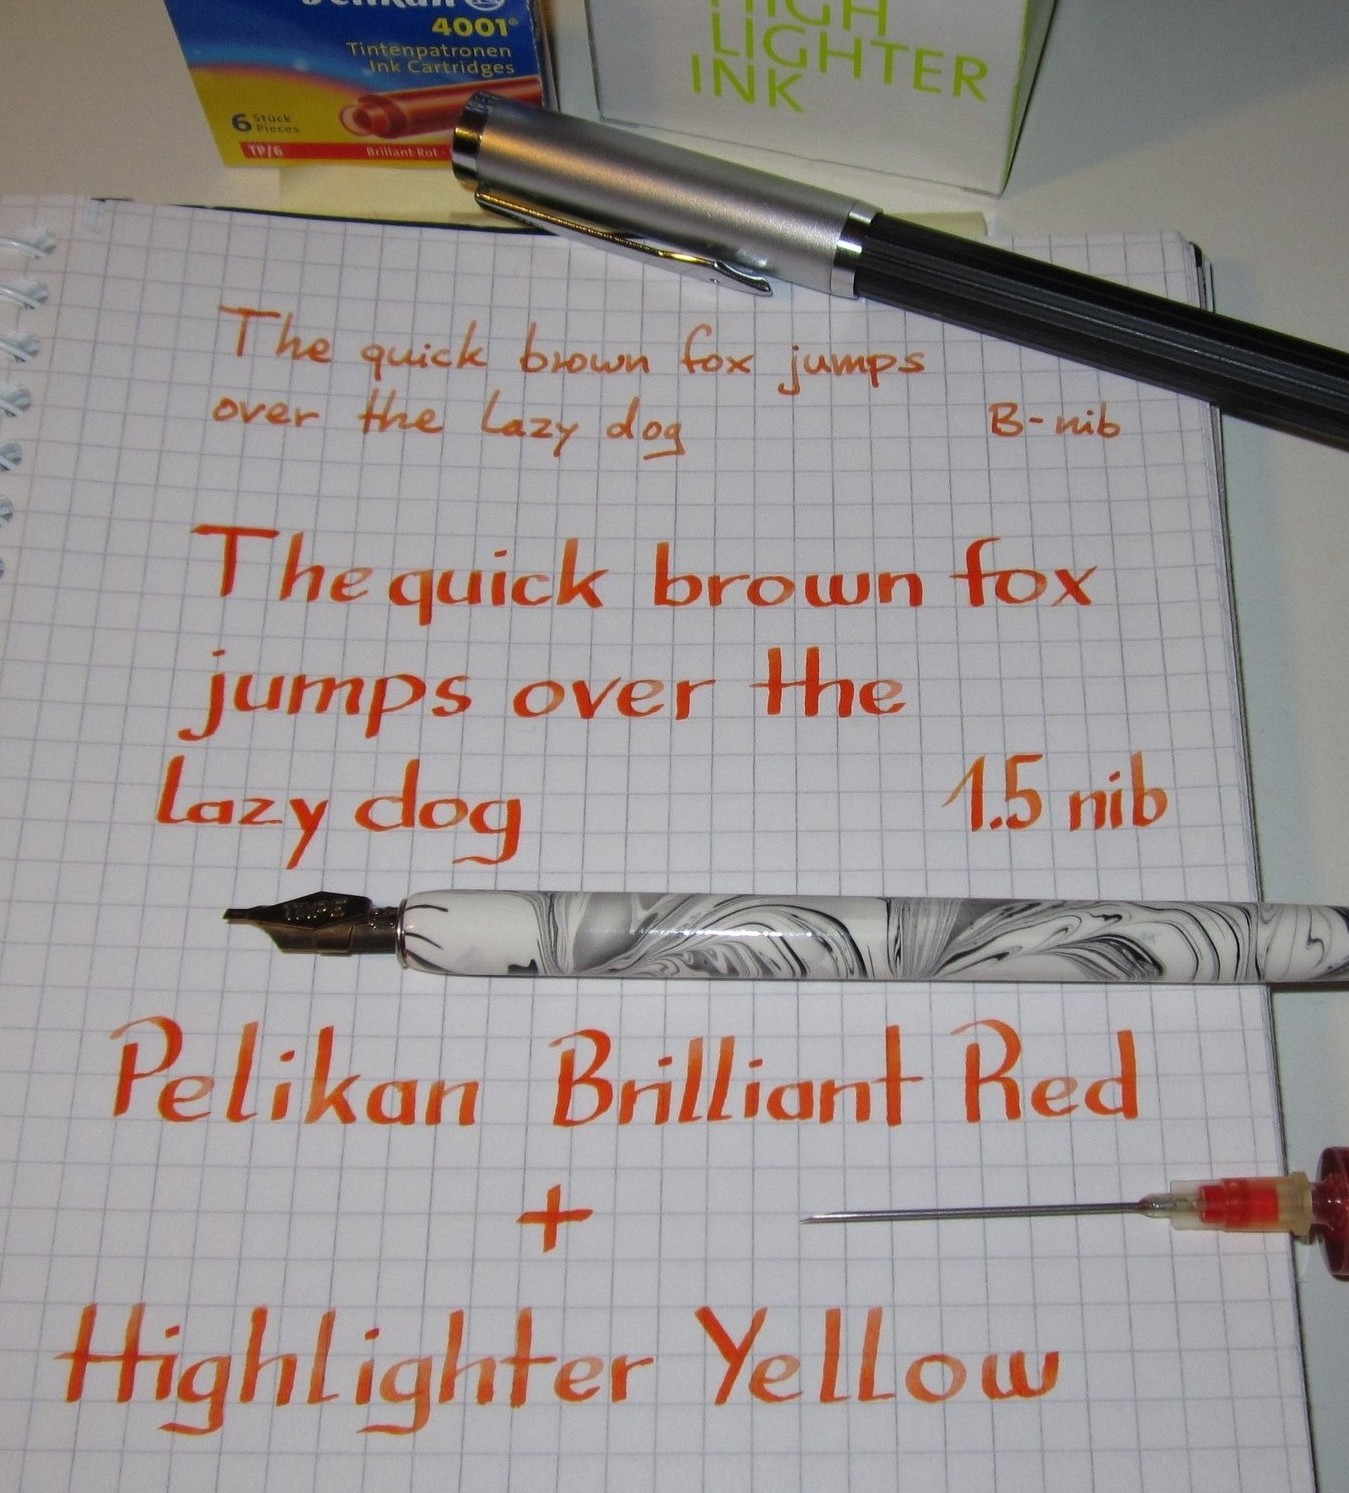 Pelikan
4001®
Tintenpatronen
Ink Cartridges
6 Stück
Pieces
TP/6 Brillant-Rot
HIGH
LIGHTER
INK
The quick brown fox jumps
over the lazy dog B-nib
The quick brown fox
jumps over the
lazy dog 1.5 nib
Pelikan Brilliant Red
+
Highlighter Yellow